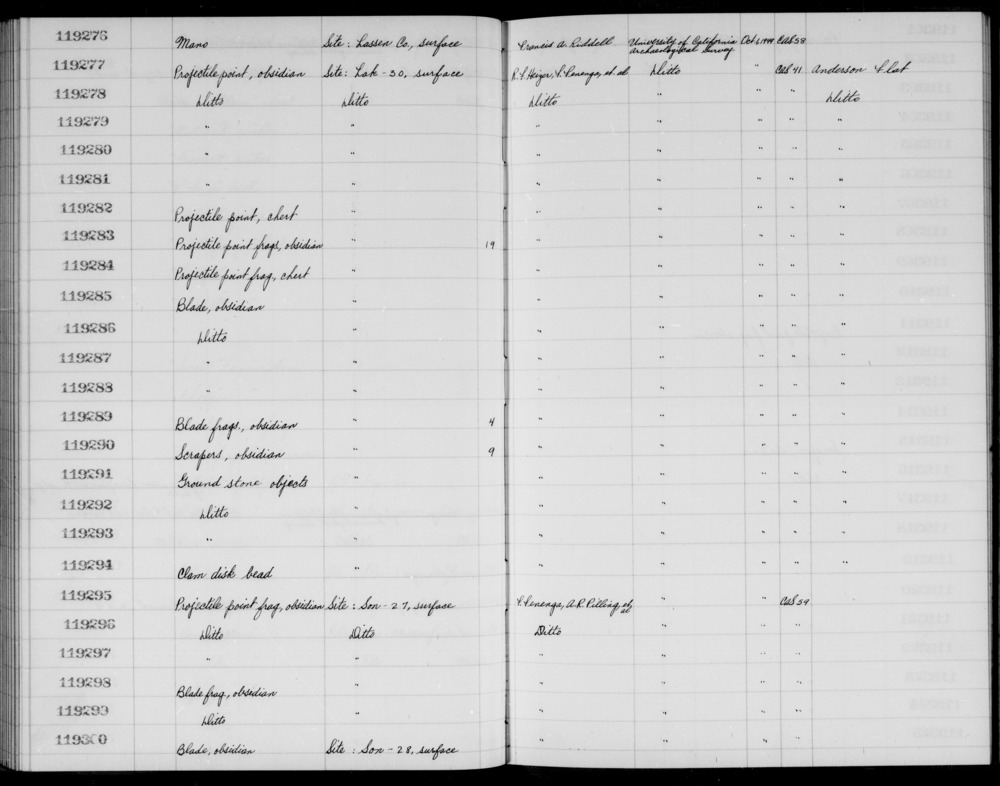 119276 Mano Site: Lassen Co., surface Francis A. Riddell University of California Archaeological Survey Oct 6, 1949 CAS 38
119277 Projectile point, obsidian Site: Lak-30, surface R.F. Heizer, F. Fenenga, et al Ditto " CAS 41 Anderson Flat
119278 Ditto Ditto Ditto " " " Ditto
119279 " " " " " " "
119280 " " " " " " "
119281 " " " " " " "
119282 Projectile point, chert " " " " " "
119283 Projectile point frags, obsidian " 19 " " " " "
119284 Projectile point frag, chert " " " " " "
119285 Blade, obsidian " " " " " "
119286 Ditto " " " " " "
119287 " " " " " " "
119288 " " " " " " "
119289 Blade frags., obsidian " 4 " " " " "
119290 Scrapers, obsidian " 9 " " " " "
119291 Ground stone objects " " " " " "
119292 Ditto " " " " " "
119293 " " " " " " "
119294 Clam disk bead " " " " " "
119295 Projectile point frag, obsidian Site: Son-27, surface F. Fenenga, A.R. Pilling, et al " " CAS 39
119296 Ditto Ditto Ditto " " "
119297 " " " " " "
119298 Blade frag, obsidian " " " " "
119299 Ditto " " " " "
119300 Blade, obsidian Site: Son-28, surface " " " "